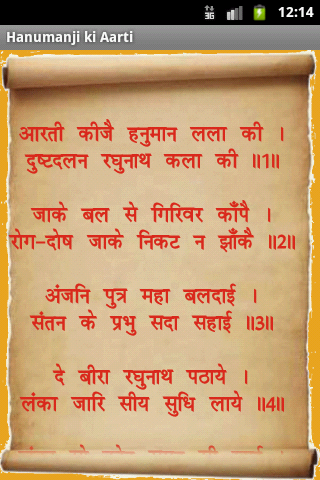 3G 12:14
Hanumanji ki Aarti
आरती कीजै हनुमान लला की ।
दुष्टदलन रघुनाथ कला की ॥1॥
जाके बल से गिरिवर काँपै ।
रोग-दोष जाके निकट न झाँकै ॥2॥
अंजनि पुत्र महा बलदाई ।
संतन के प्रभु सदा सहाई ॥3॥
दे बीरा रघुनाथ पठाये ।
लंका जारि सीय सुधि लाये ॥4॥